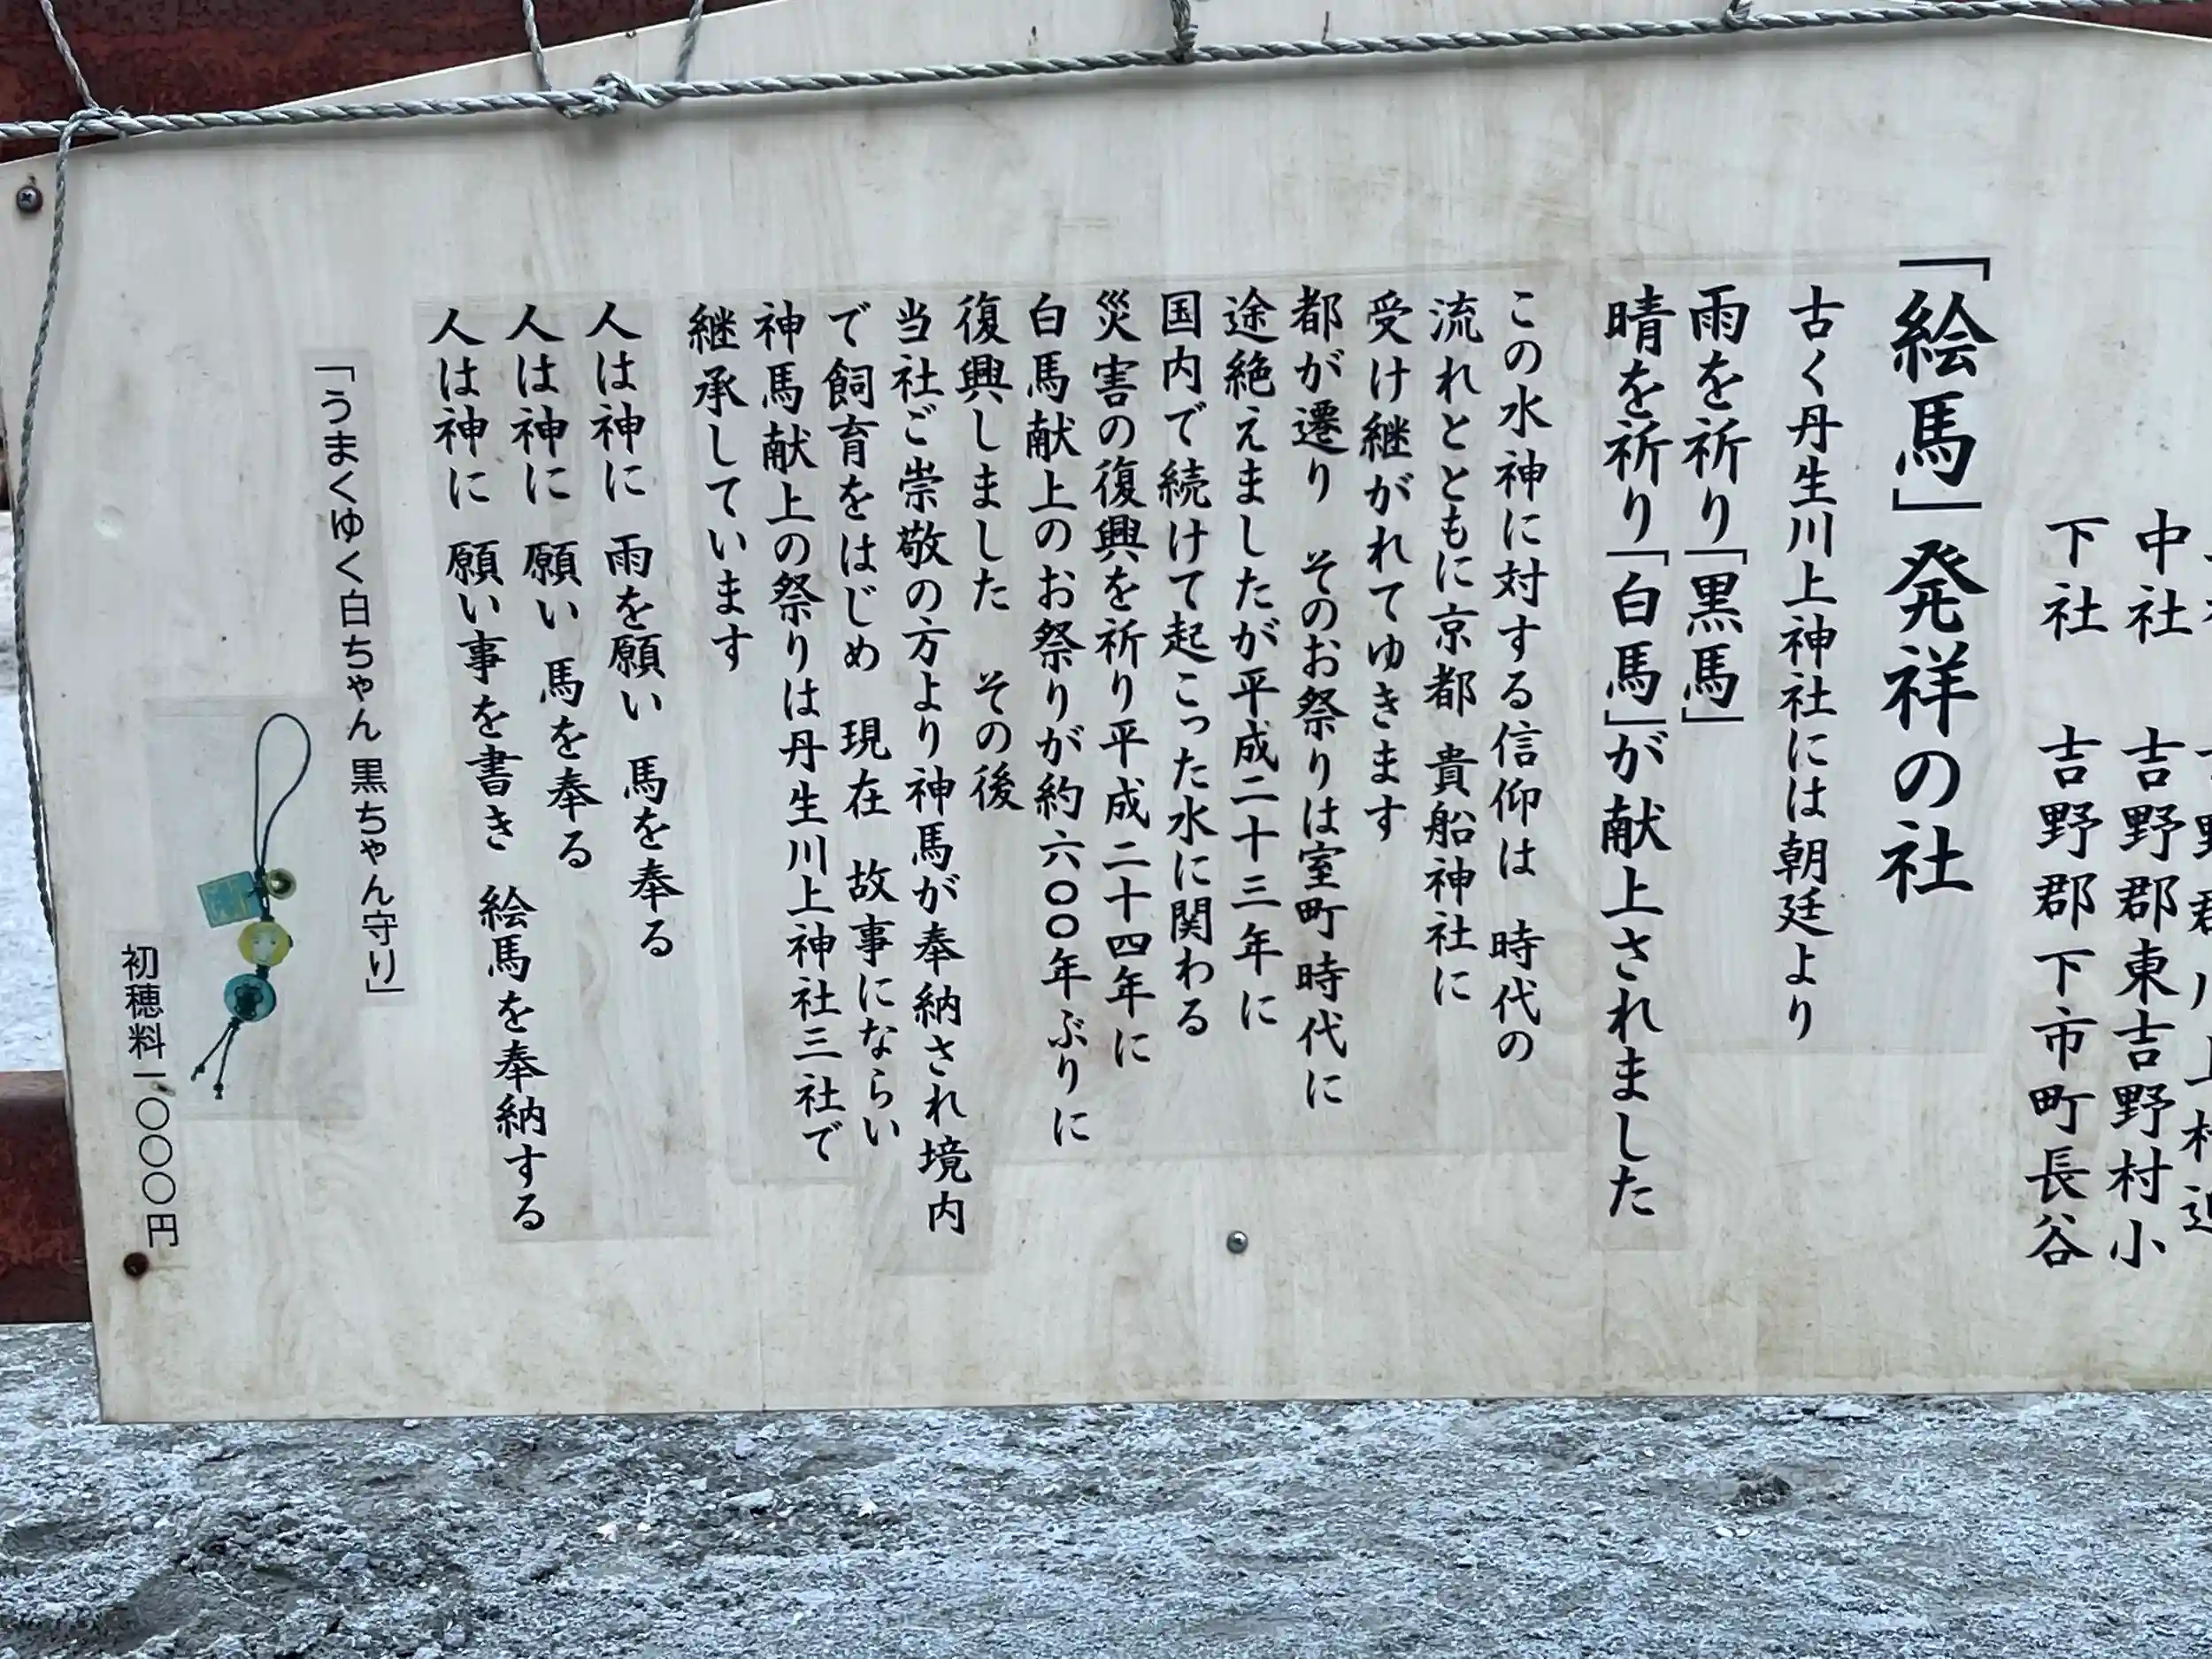 中社 吉野郡東吉野村小
下社 吉野郡下市町長谷
「絵馬」発祥の社
古く丹生川上神社には朝廷より
雨を祈り「黒馬」
晴を祈り「白馬」が献上されました
この水神に対する信仰は 時代の
流れとともに京都 貴船神社に
受け継がれてゆきます
都が遷り そのお祭りは室町時代に
途絶えましたが平成二十三年に
国内で続けて起こった水に関わる
災害の復興を祈り平成二十四年に
白馬献上のお祭りが約六〇〇年ぶりに
復興しました その後
当社ご崇敬の方より神馬が奉納され境内
で飼育をはじめ 現在 故事にならい
神馬献上の祭りは丹生川上神社三社で
継承しています
人は神に 雨を願い 馬を奉る
人は神に 願い 馬を奉る
人は神に 願い事を書き 絵馬を奉納する
「うまくゆく白ちゃん 黒ちゃん守り」
初穂料一〇〇〇円